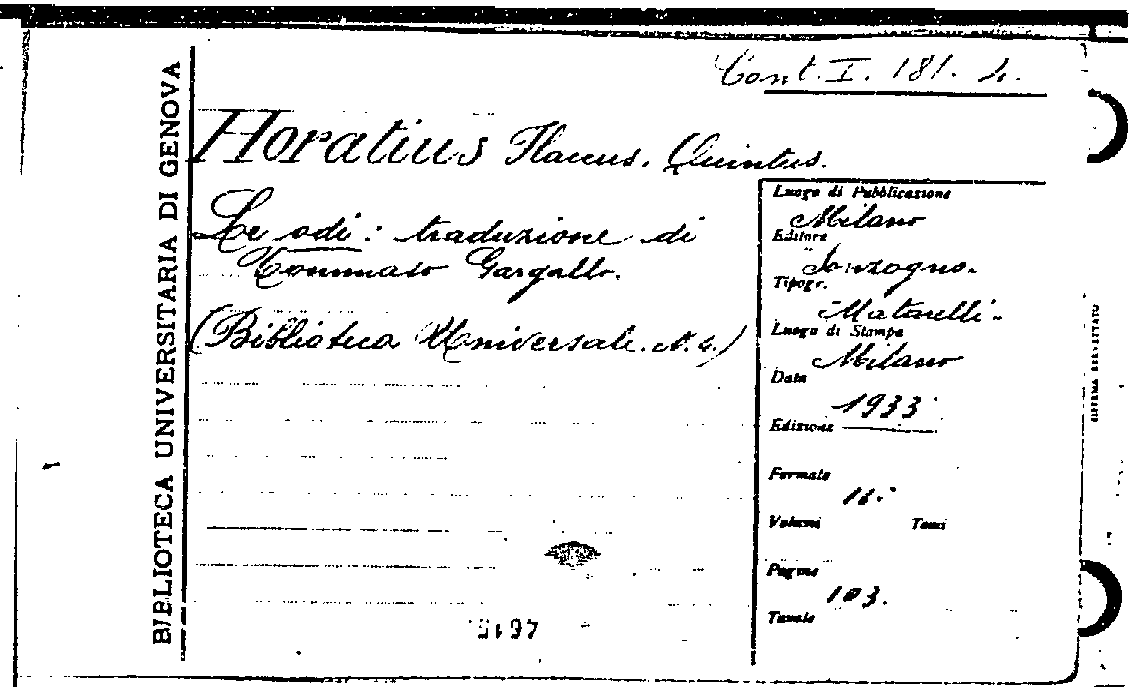 Cont. I. 181. 4.
BIBLIOTECA UNIVERSITARIA DI GENOVA
Horatius Flaccus. Quintus.
Le odi: traduzione di
Tommaso Gargallo.
(Biblioteca Universale. N. 4.)
Luogo di Pubblicazione
Milano
Editore
Sonzogno.
Tipogr.
Matarelli.
Luogo di Stampa
Milano
Data
1933
Edizione
Formato
16.
Volumi Tomi
Pagine
103.
Tavole